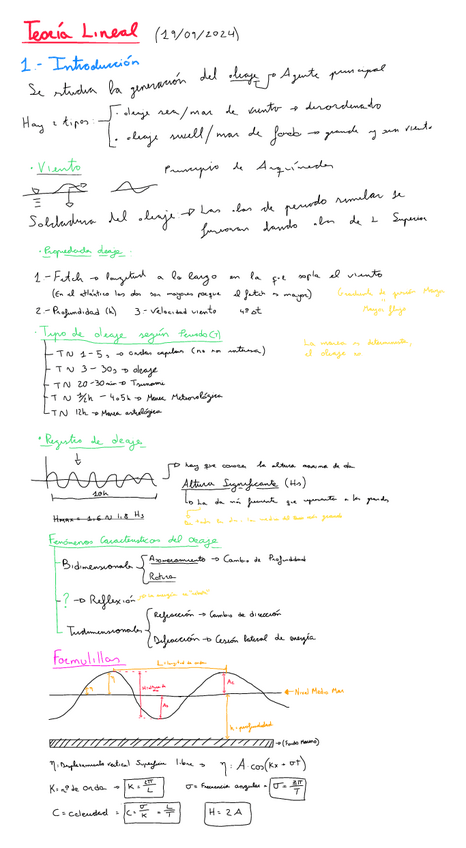 Teoría Lineal (19/09/2024)
1.- Introducción
Se studia la generación del oleaje → Agente principal
Hay 2 tipos:
· oleaje sea/mar de viento → desordenado
· oleaje swell/mar de fondo → grande y sin viento
· Viento
Principio de Arquímedes
del oleaje → Las olas de periodo similar se
fusionan dando olas de L Superior
· Propiedades oleaje
1-Fetch → longitud a lo largo en la que sopla el viento
(En el atlántico las olas son mayores porque el fetch es mayor)
2.- Profundidad (h) 3-Velocidad viento 4º Δt
Mayor flujo
· Tipo de oleaje según Periodo (T)
T ~ 1-5s → ondas capilares (no nos interesa)
T ~ 3-30s → oleaje
T ~ 20-30min → Tsunamis
T ~ 1/2h - 4.5h → Marea Meteorológica
T ~ 12h → Marea astrológica
La marea es determinante,
el oleaje no
· Registro de oleaje
→ hay que conocer la altura maxima de ola
Altura Significante (Hs)
10h
Hmax = 1.6 ~ 1.8 Hs
Fenómenos Característicos del Oleaje
Bidimensionales
Asomeramiento → Cambio de Profundidad
Rotura
? → Reflexión
Tridimensionales
Refracción → Cambio de dirección
Difracción → Cesión lateral de energía
Formulillas
L = longitud de onda
η
η
A₂
A₂
← Nivel Medio Mar
h = profundidad
→ (Fondo Marino)
η: Desplazamiento vertical Superficie libre → η: A·cos(Kx + σT)
K = nº de onda → K = 2π/L σ = Frecuencia angular = σ = 2π/T
C = celeridad = C = σ/K = L/T H = 2A